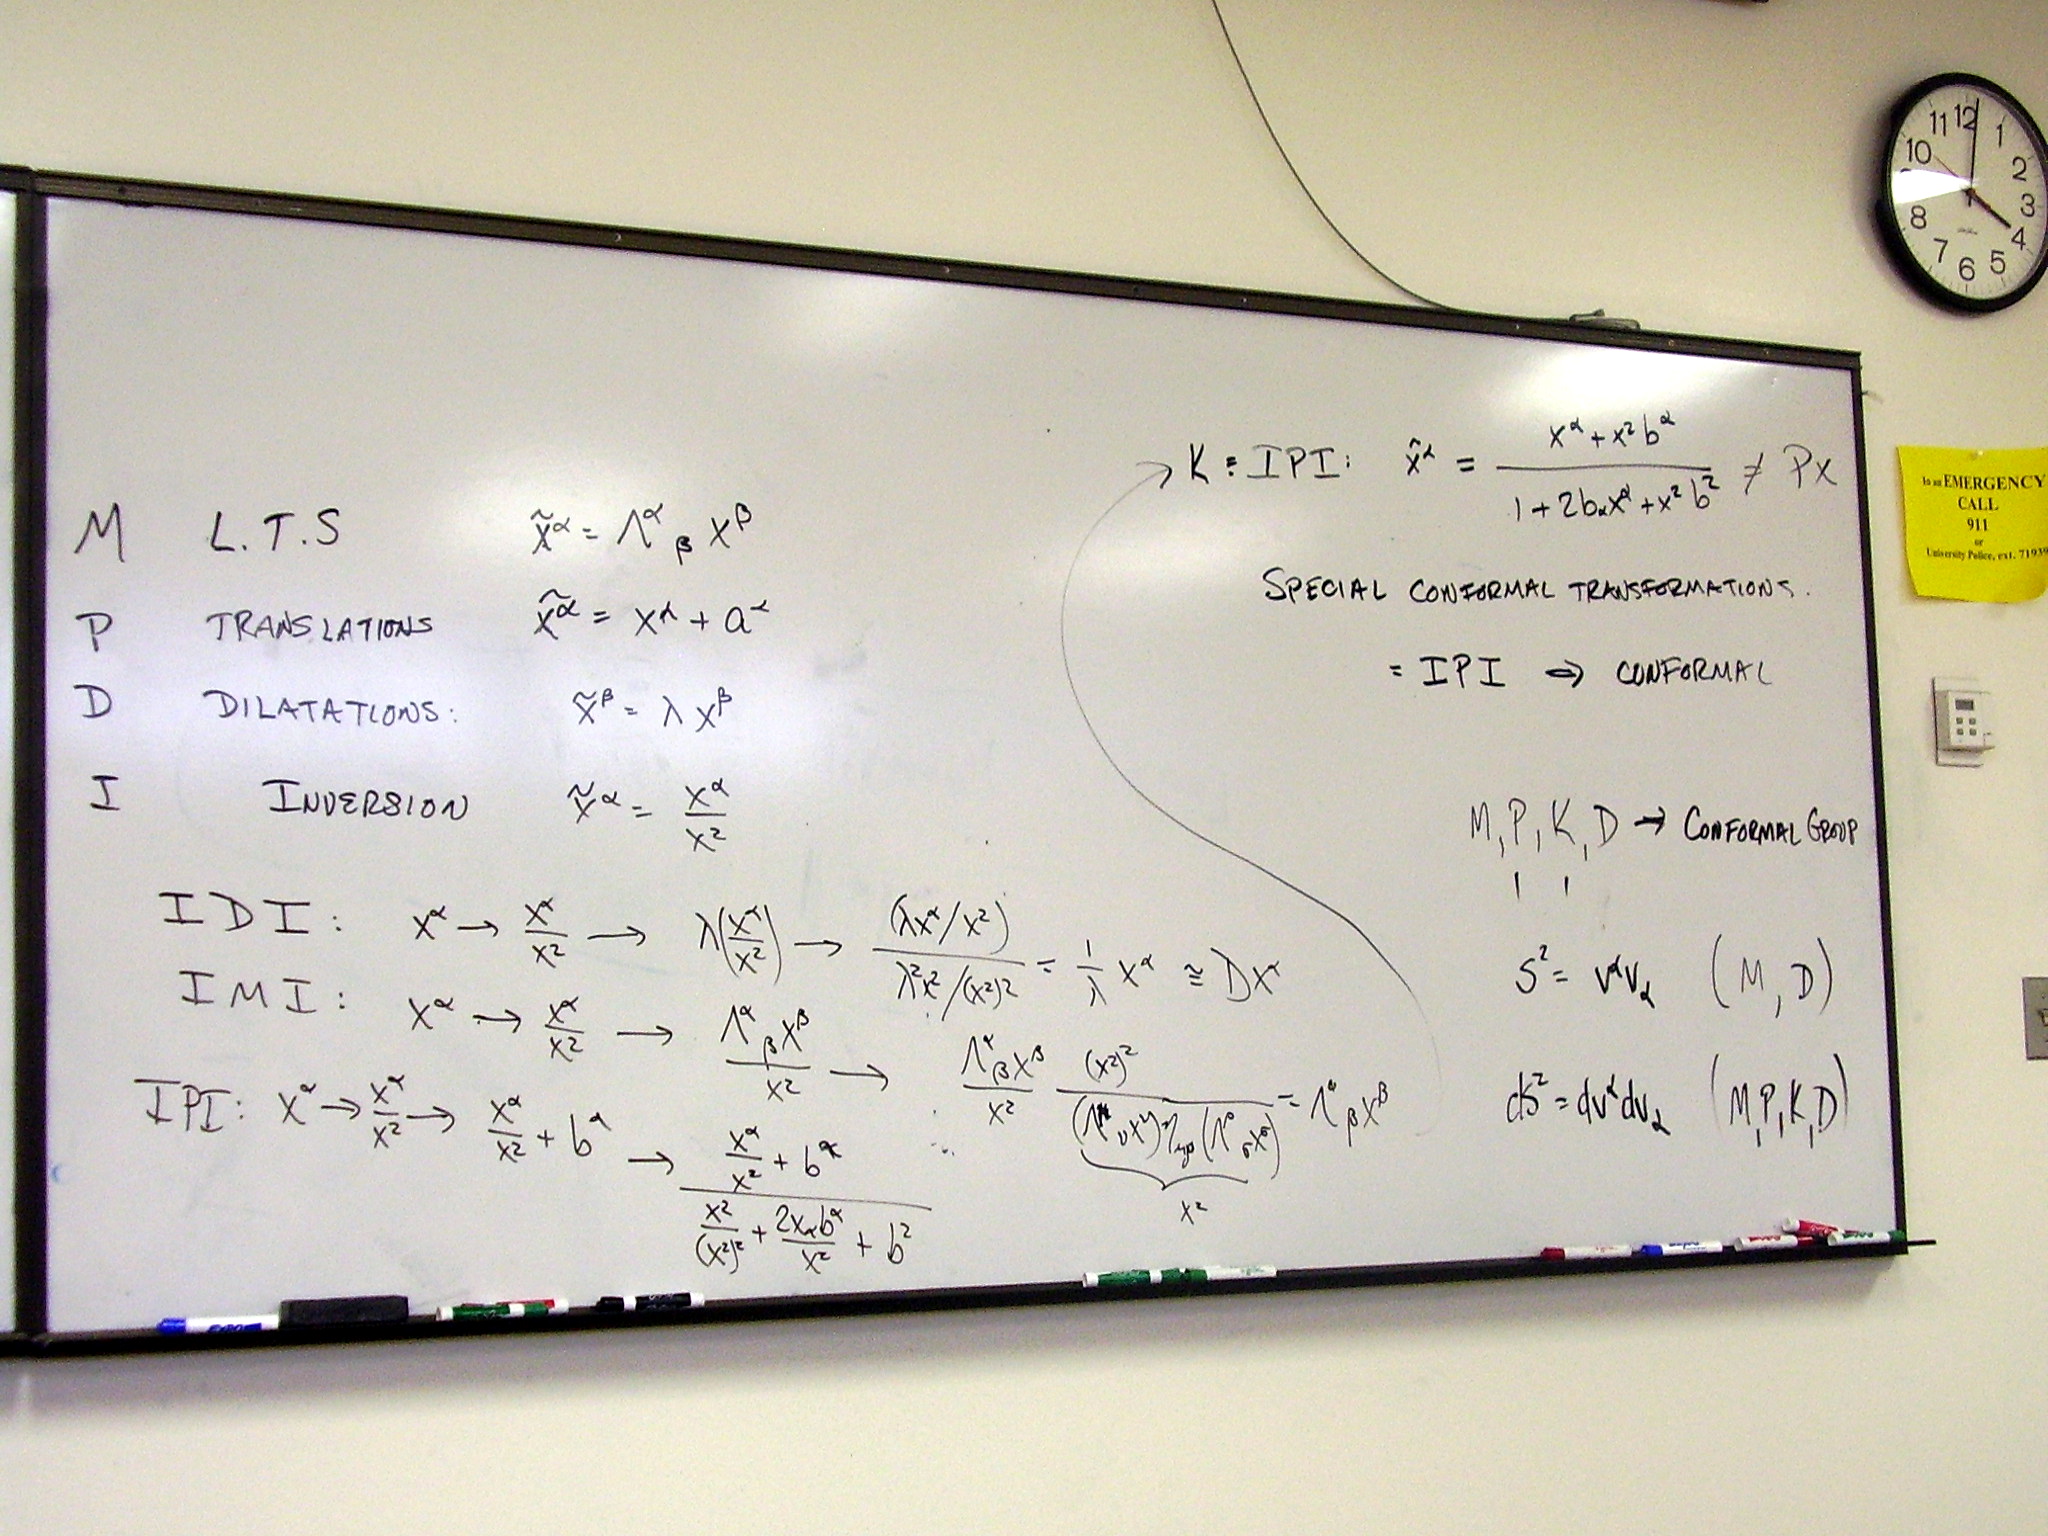 M L.T.S x̃^α = Λ^α_β x^β
P TRANSLATIONS x̃^α = x^α + a^α
D DILATATIONS: x̃^β = λ x^β
I INVERSION x̃^α = x^α/x²
IDI: x^α → x^α/x² → λ(x^α/x²) → (λx^α/x²)/(λ²x²/(x²)²) = 1/λ x^α ≅ Dx^α
IMI: x^α → x^α/x² → Λ^α_β x^β/x² → Λ^α_β x^β/x² (x²)²/((Λ^μ_ν x^ν)η_μρ(Λ^ρ_σ x^σ)) = Λ^α_β x^β
x²
IPI: x^α → x^α/x² → x^α/x² + b^α → (x^α/x² + b^α)/(x²/(x²)² + 2x_αb^α/x² + b²)
K = IPI: x̂^α = (x^α + x²b^α)/(1 + 2b_αx^α + x²b²) ≠ Px
SPECIAL CONFORMAL TRANSFORMATIONS.
= IPI ⇒ CONFORMAL
M, P, K, D → CONFORMAL GROUP
S² = v^αv_α (M, D)
ds² = dv^αdv_α (M, P, K, D)
11 12 1
10 2
3
8 4
7 6 5
In an EMERGENCY
CALL
911
or
University Police, ext. 71939